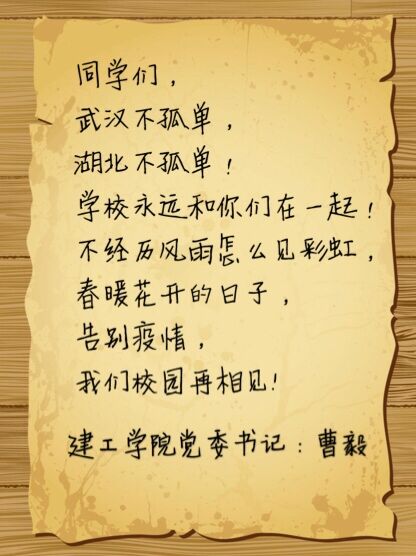 同学们，
武汉不孤单，
湖北不孤单！
学校永远和你们在一起！
不经历风雨怎么见彩虹，
春暖花开的日子，
告别疫情，
我们校园再相见！
建工学院党委书记：曹毅